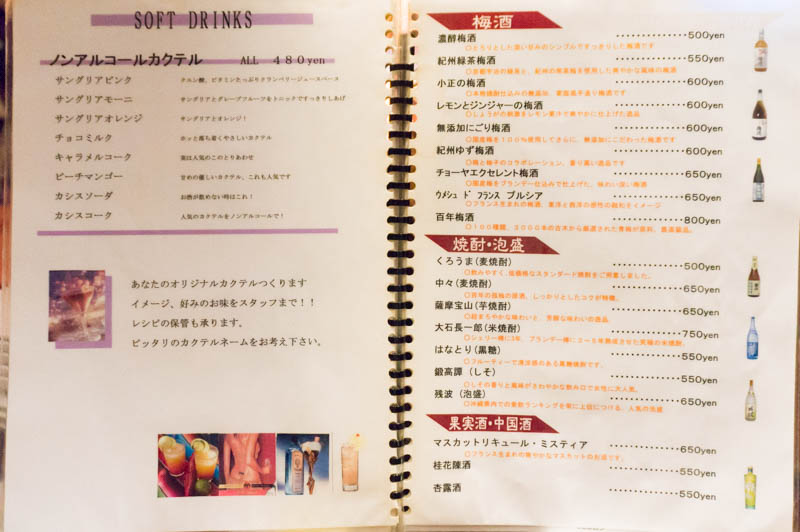 SOFT DRINKS
ノンアルコールカクテル ALL 480yen
サングリアピンク クエン酸、ビタミンたっぷりクランベリージュースベース
サングリアモーニ サングリアとグレープフルーツをトニックですっきりしあげ
サングリアオレンジ サングリアとオレンジ！
チョコミルク ホッと落ち着くやさしいカクテル
キャラメルコーク 実は人気のこのとりあわせ
ピーチマンゴー 甘めの優しいカクテル、これも人気です
カシスソーダ お酒が飲めない時はこれ！
カシスコーク 人気のカクテルをノンアルコールで！
あなたのオリジナルカクテルつくります
イメージ、好みのお味をスタッフまで！！
レシピの保管も承ります。
ピッタリのカクテルネームをお考え下さい。
梅酒
濃醇梅酒 500yen
○とろりとした深い甘みのシンプルですっきりした梅酒です
紀州緑茶梅酒 550yen
○京都宇治の緑茶と、紀州の南高梅を使用した爽やかな風味の梅酒
小正の梅酒 600yen
○本格焼酎仕込みの無添加、家庭風手造り梅酒です
レモンとジンジャーの梅酒 600yen
○しょうがの刺激をレモン果汁で爽やかに仕上げた逸品
無添加にごり梅酒 600yen
○国産梅を100%使用してさらに、無添加にこだわった梅酒です
紀州ゆず梅酒 600yen
○梅と柚子のコラボレーション、香り高い逸品です
チョーヤエクセレント梅酒 650yen
○国産梅をブランデー仕込みで仕上げた、味わい深い梅酒
ウメシュ ド フランス プルシア 650yen
○フランス生まれの梅酒、東洋と西洋の感性の融和をイメージ
百年梅酒 800yen
○100種類、3000本の古木から厳選された青梅が原料、最高級品。
焼酎・泡盛
くろうま（麦焼酎） 500yen
○飲みやすく、低価格なスタンダード焼酎をご用意しました。
中々（麦焼酎） 650yen
○百年の孤独の原酒、しっかりとしたコクが特徴。
薩摩宝山（芋焼酎） 650yen
○超まろやかな味わいと、芳醇な味わいの逸品。
大石長一郎（米焼酎） 750yen
○シェリー樽に3年、ブランデー樽に2～5年熟成させた究極の米焼酎。
はなとり（黒糖） 550yen
○フルーティーで清涼感のある黒糖焼酎です。
鍛高譚（しそ） 550yen
○しその香りと風味がさわやかな飲み口で女性に大人気。
残波（泡盛） 650yen
○沖縄県内での愛飲ランキングを常に上位につける、人気の泡盛
果実酒・中国酒
マスカットリキュール・ミスティア 650yen
○フランス生まれの爽やかなマスカットのお酒です。
桂花陳酒 550yen
杏露酒 550yen